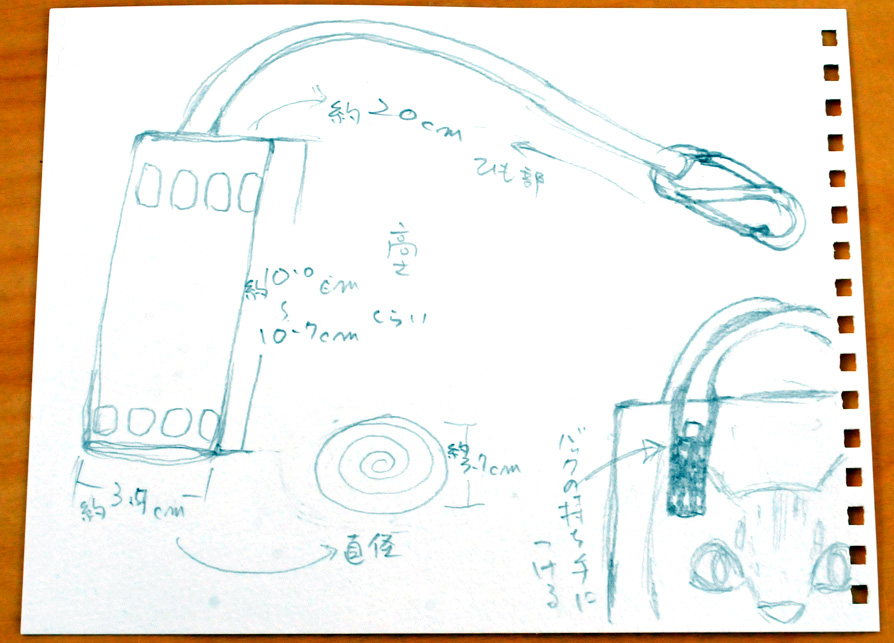 約20cm
ひも部
高さ
約10.0cm
〜
10.7cm くらい
約3.7cm
約3.7cm
直径
バックの持ち手に
つける